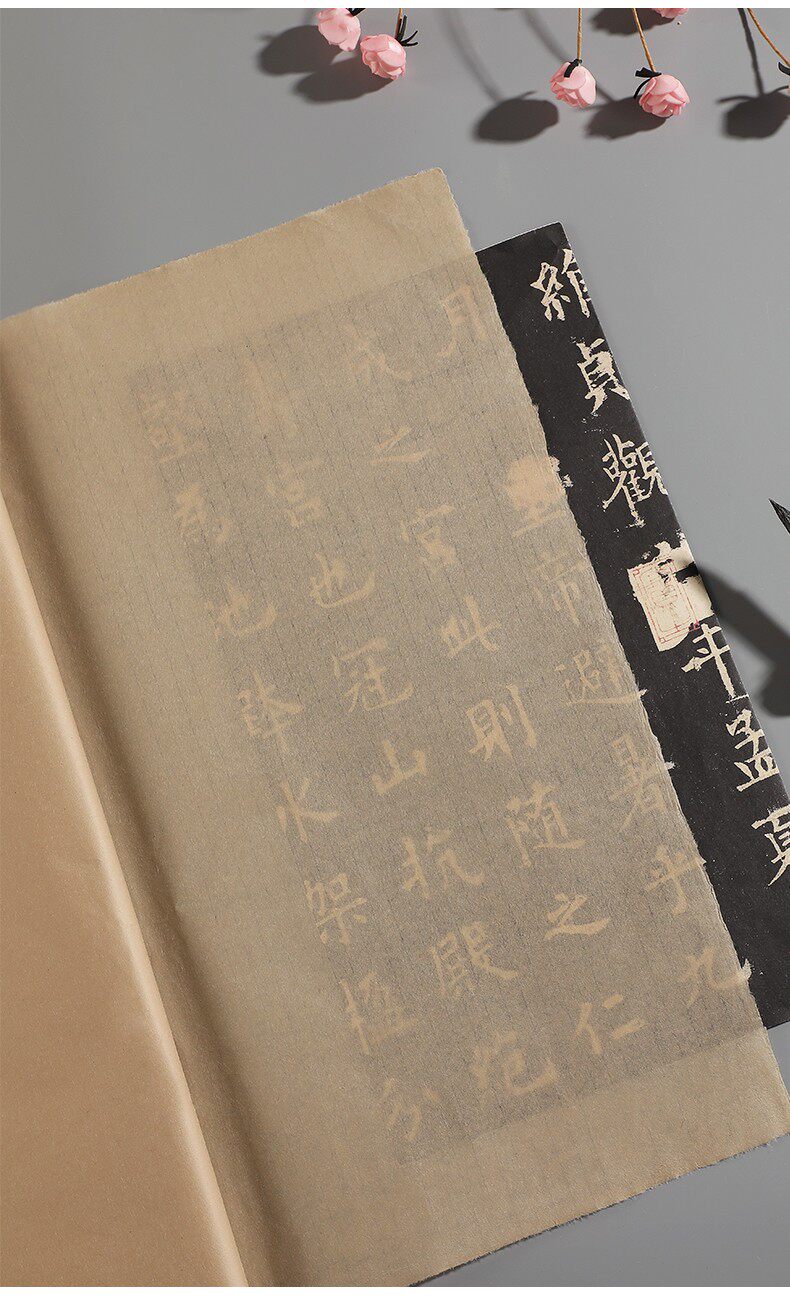 維貞觀年孟夏
月皇帝避暑乎九
成之宮此則随之仁
壽宮也冠山抗殿絕
壑為池跨水架楹分